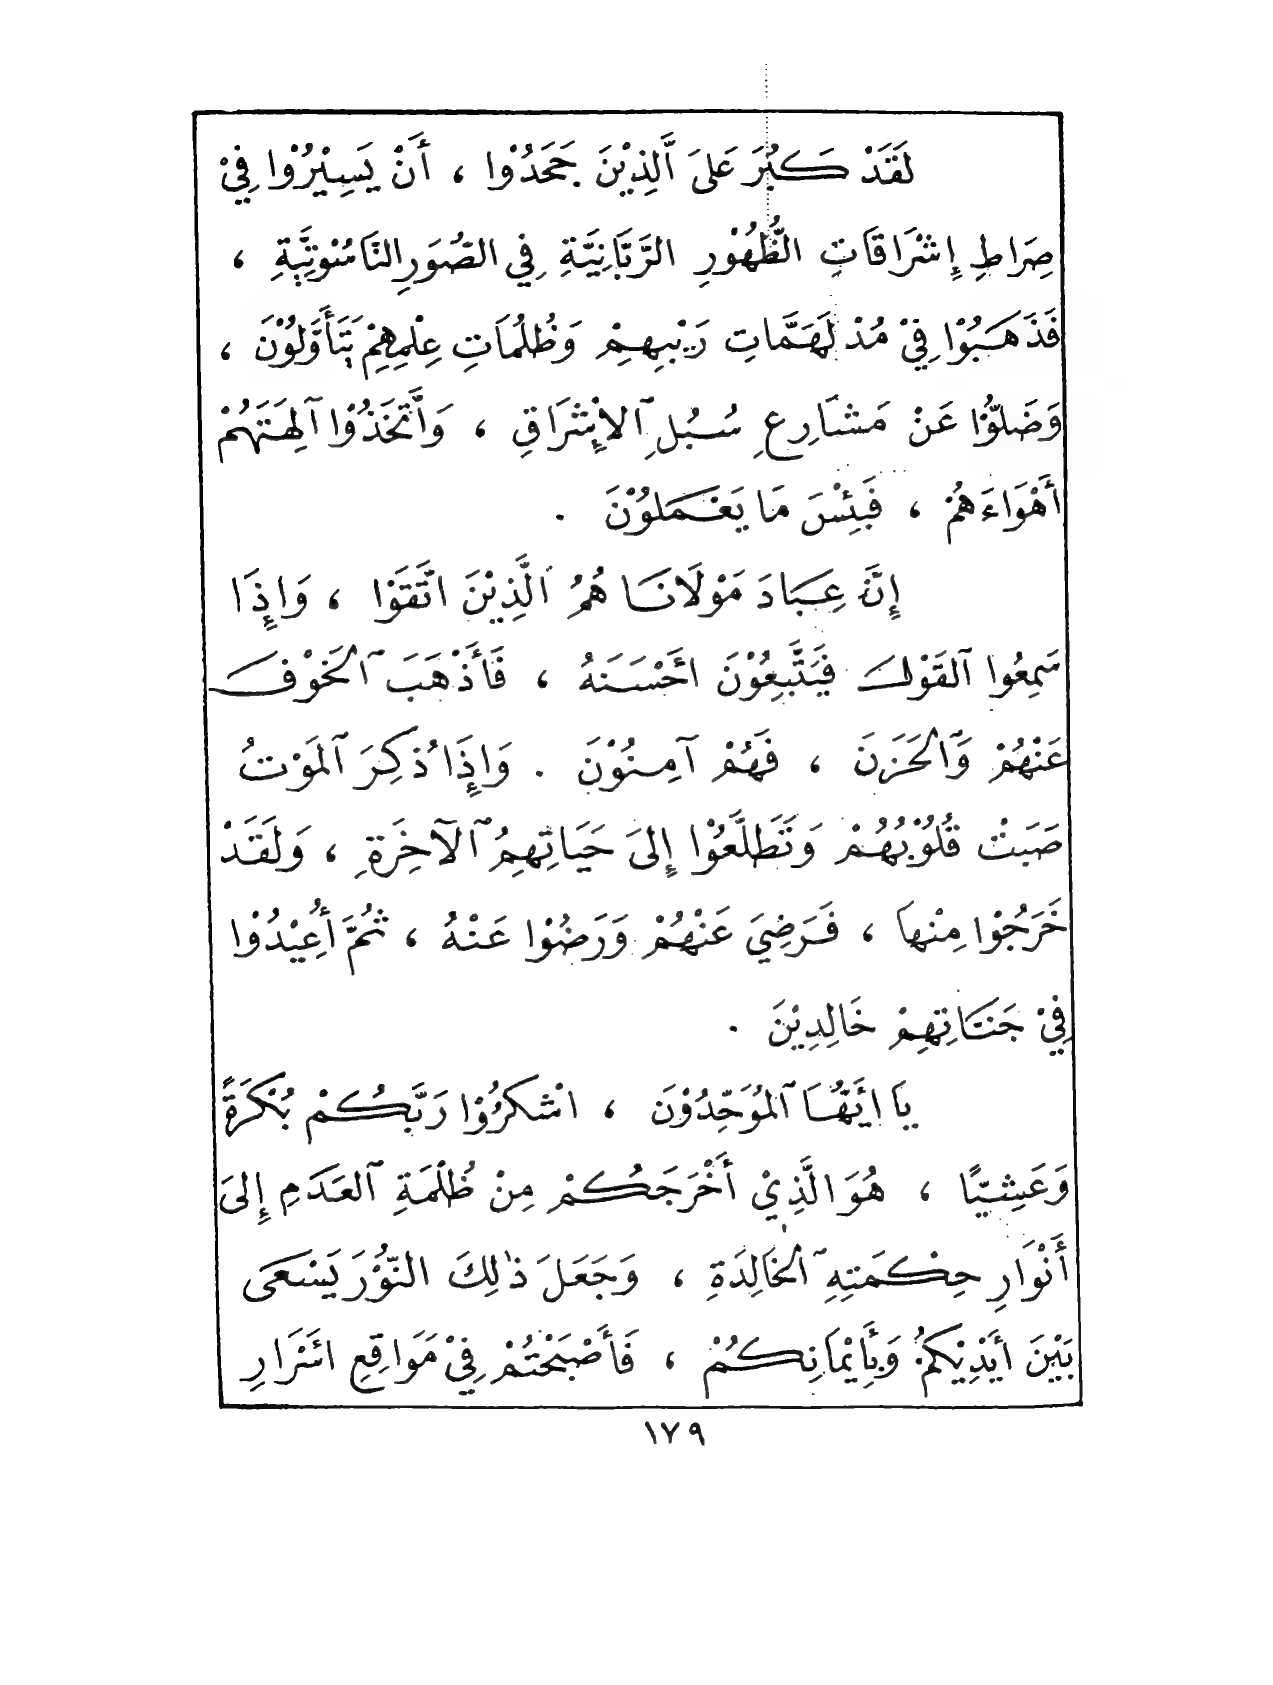 لَقَدْ كَبُرَ عَلَى ٱلَّذِيْنَ جَحَدُوْا ، أَنْ يَسِيْرُوْا فِيْ
صِرَاطِ إِشْرَاقَاتِ الظُّهُوْرِ الرَّبَّانِيَّةِ فِي الصُّوَرِ النَّاسُوْتِيَّةِ ،
فَذَهَبُوْا فِيْ مُدْلَهَمَّاتِ رَيْبِهِمْ وَظُلُمَاتِ عِلْمِهِمْ يَتَأَوَّلُوْنَ ،
وَضَلُّوْا عَنْ مَشَارِعِ سُبُلِ ٱلإِشْرَاقِ ، وَاتَّخَذُوْا آلِهَتَهُمْ
أَهْوَاءَهُمْ ، فَبِئْسَ مَا يَعْمَلُوْنَ .
إِنَّ عِبَادَ مَوْلَانَا هُمُ ٱلَّذِيْنَ اتَّقَوْا ، وَإِذَا
سَمِعُوا ٱلقَوْلَ فَيَتَّبِعُوْنَ أَحْسَنَهُ ، فَأَذْهَبَ ٱلخَوْفَ
عَنْهُمْ وَٱلحَزَنَ ، فَهُمْ آمِنُوْنَ . وَإِذَا ذُكِرَ ٱلمَوْتُ
صَبَتْ قُلُوْبُهُمْ وَتَطَلَّعُوْا إِلَى حَيَاتِهِمُ ٱلآخِرَةِ ، وَلَقَدْ
خَرَجُوْا مِنْهَا ، فَرَضِيَ عَنْهُمْ وَرَضُوْا عَنْهُ ، ثُمَّ أُعِيْدُوْا
فِيْ جَنَّاتِهِمْ خَالِدِيْنَ .
يَا أَيُّهَا ٱلمُوَحِّدُوْنَ ، اشْكُرُوْا رَبَّكُمْ بُكْرَةً
وَعَشِيًّا ، هُوَ الَّذِيْ أَخْرَجَكُمْ مِنْ ظُلْمَةِ ٱلعَدَمِ إِلَى
أَنْوَارِ حِكْمَتِهِ ٱلخَالِدَةِ ، وَجَعَلَ ذٰلِكَ النُّوْرَ يَسْعَى
بَيْنَ أَيْدِيْكُمْ وَبِأَيْمَانِكُمْ ، فَأَصْبَحْتُمْ فِيْ مَوَاقِعِ أَسْرَارِ
١٧٩